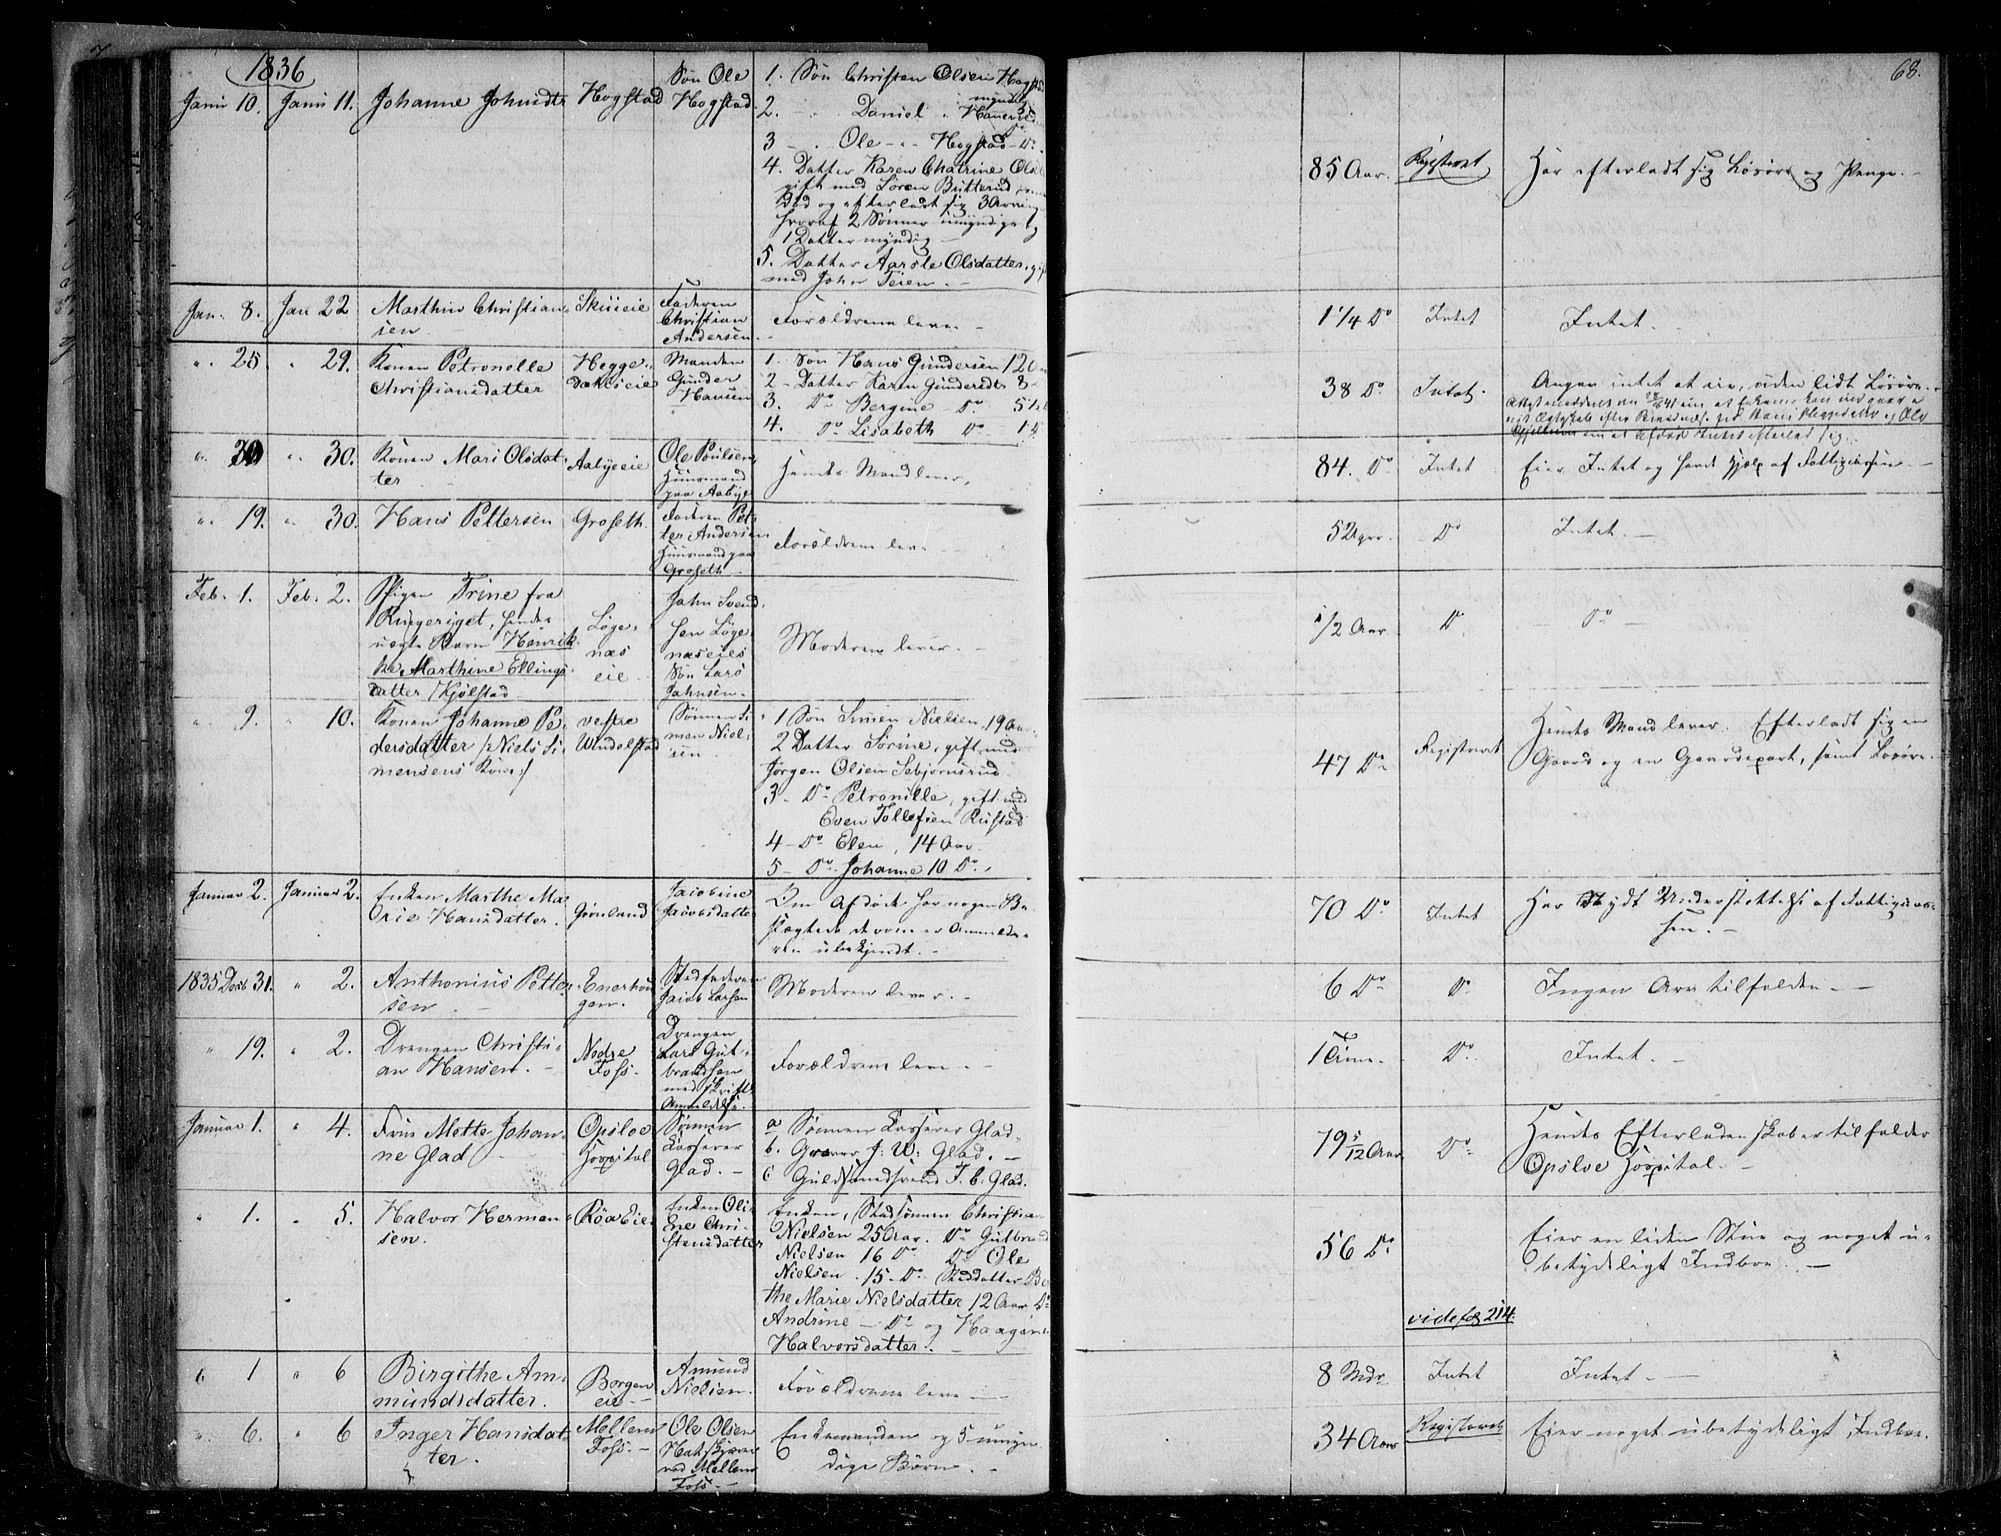 68.
1836
Janu 10. Janu 11. Johanne Johnsdtr Hogstad Søn Ole Hogstad
1. Søn Christen Olsen Hogstad myndig
2. Daniel
3 Ole Hogstad Do
4. Datter Karen Chatrine
gift med Søren Butterud
Død og efterladt sig 3
hvoraf 2 Sønner umyndige og
1 Datter myndig
5. Datter Aarste Olsdatter, gift
med John Teien.
85 Aar. Registeret Har efterladt sig Løsøre og Penge.
Jan. 8. Jan 22 Marthin Christian-
sen Skuieie Faderen
Christian
Andersen.
Forældrene leve.
1 1/4 Do Intet Intet.
" 25. " 29. Konen Petronelle
Christiansdatter Hegge-
Manden
Gunder
1. Søn Hans Gundersen 12
2 - Datter Karen Gundersdtr 8
3. Do Bergine Do 5
4. Do Lisabeth Do
38 Do Intet. Angav intet at eie, uden lidt Løsøre.
" " 30. Konen Mari Olsdat-
ter Aabyeeie Ole Poulsen,
Huusmand
paa Aabye
Hendes Mand lever,
84. Do Intet Eier Intet og havt Hjelp af Fattigcassen
" 19. " 30. Hans Pettersen Groseth. Faderen Pet-
ter Andersen
Huusmand paa
Groseth
Forældrene leve
52 Do Intet.
Feb. 1. Feb. 2. Pigen Trine fra
Ringeriget, hendes
uegte Barn Henrik-
ke Marthine Ellings-
datter Kjølstad
Løge-
næs
eie
John Svend-
sen Løge
næseies
Søn Lars
Johnsen.
Moderen lever.
1/2 Aar Do Do
" 9. " 10. Konen Johanne Pe-
dersdatter /: Niels Si-
mensens Kone :/
vestre
Undelstad
Sønnen Si-
men Niel-
sen
1 Søn Simen Nielsen, 19 Aar
2 Datter Sørine, gift med
Jørgen Olsen Sebjørnsrud
3 - Do Petronille, gift med
Even Tollefsen Rustad
4 - Do Elen, 14 Aar
5 - Do Johanne 10 Do
47 Do Registeret Hendes Mand lever. Efterladt sig en
Gaard og en Gaardepart, samt Løsøre.
Januar 2. Januar 2. Enken Marthe Ma-
rie Hansdatter. Grønland Jacobine
Jacobsdatter
Om Afdøde har nogen Be-
slægtede derom er Anmelde-
ren ubekjendt.
70 Do Intet Har Nydt Understøttelse af Fattigcas-
sen.
1835 Decb 31. " 2. Anthonius Petter-
sen Enerhou-
gen. Stedfaderen
Jacob Larsen Moderen lever.
6 Do Do Ingen Arv tilfalden
" 19. " 2. Drengen Christi-
an Hansen. Nedre
Foss. Drengen
Lars Gut-
brandsen
med skriftl.
Anmeldelse.
Forældrene leve.
1 Time. Do Intet.
Januar 1. " 4. Frue Mette Johan-
ne Glad Opsloe
Hospital Sønnen
Kasserer
Glad.
a Sønnen Kasserer Glad
b. J: W: Glad.
c Guldsmedsvend F. C. Glad.
79 5/12 Aar Do Hendes Efterladenskaber tilfalder
Opsloe Hospital.
" 1. " 5. Halvor Herman-
sen. Røa Eie. Enken Oli-
ene Chri-
stensdatter
Enken, Stedsønnen Christian
Nielsen 25 Aar. Do Gutbrand
Nielsen 16 Do Do Ole
Nielsen 15 Do Steddatter
the Marie Nielsdatter 12 Aar Do
Andrine Do og
Halvorsdatter.
56 Do Eier en liden Stue og noget u-
betydeligt Indboe.
vide fol 214.
" 1 " 6 Birgithe Am-
mundsdatter. Borgen
eie Amund
Nielsen. Forældrene leve
8 Mdr Intet Intet
" 6. " 6 Inger Hansdat-
ter. Mellem
Foss. Ole Olsen
ved Mellem
Foss.
Enkemanden og 5 umyn
dige Børn.
34 Aar Registeret Eier noget ubetydeligt Indboe.